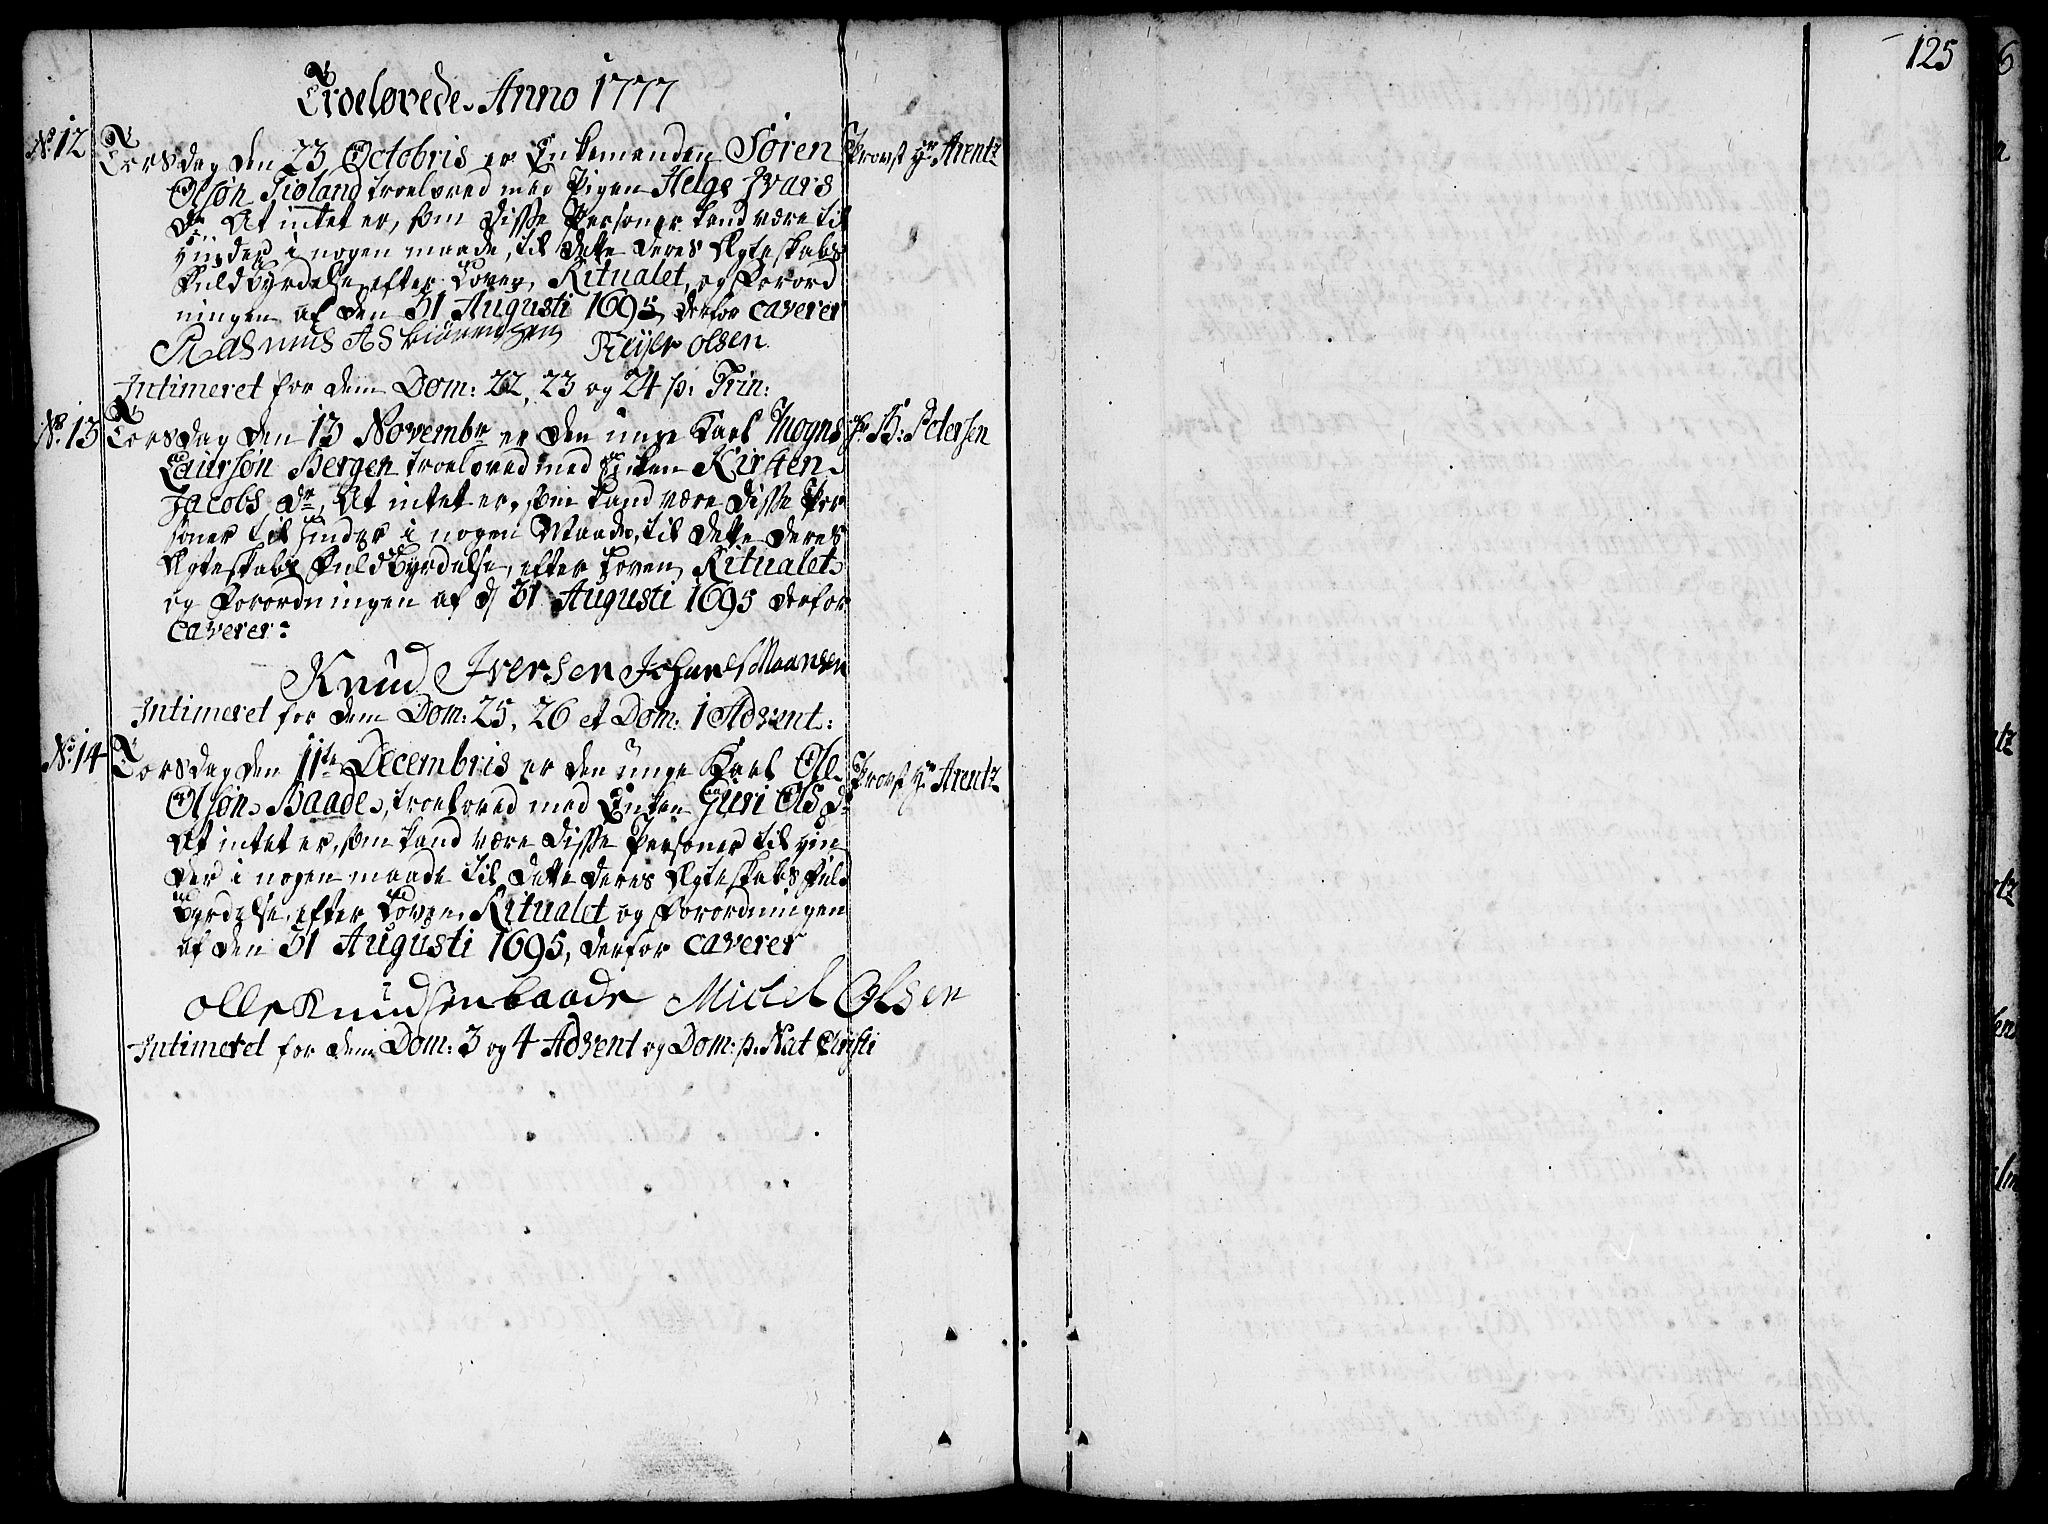 Troelovede Anno 1777
125
No 12 Torsdag den 23 Octobris er Enkemanden Sören Provst Hr Arentz
Olsøn Tioland troeloved med Pigen Helge Ivars
Dr. At intet er, som disse Personer kand være til
hinder i nogen maade, til dette deres Ægteskabs
Fuldbyrdelse efter Loven, Ritualet, og Forord
ningen af den 31 Augusti 1695 derfor caverer
Rasmus Asbiörensen Reijer olsen
Intimeret for dem Dom: 22, 23 og 24 p. Trin:
No. 13 Torsdag den 13 Novembr er den unge Karl Mogns Hr B: Petersen
Laursøn Bergen troeloved med Enken Kirsten
Jacobs Dr, At intet er, som kand være disse Per
soner til hinder i nogen Maade, til dette deres
Ægteskabs Fuldbyrdelse, efter Loven, Ritualet
og Forordningen af d 31 Augusti 1695 derfor
caverer:
Knud Iversen Johanes Maansen
Intimeret for dem Dom: 25, 26 et Dom: 1 Advent:
No. 14 Torsdag den 11te Decembris er den unge Karl Ole Provst Hr Arentz
Olsøn Baade, troeloved med Enken Guri Ols Dr
At intet er, som kand være disse Personer til hin
der i nogen maade til dette deres Ægteskabs Fuld
byrdelse, efter Loven, Ritualet og Forordningen
af den 31 Augusti 1695, derfor caverer
olle Knudsen baade Mickel Olsen
Intimeret for dem Dom: 3 og 4 Advent og Dom: p. Nat Christi